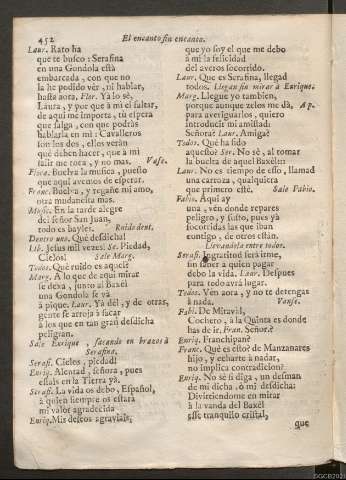 452
El encanto sin encanto.
Laur. Rato ha
que te busco: Serafina
en una Gondola està
embarcada, con que no
la he podido vèr, ni hablar,
hasta aora. Flor. Yà lo sè,
Laura, y por que à mi el saltar,
de aqui me importa, tù espera
que salga, con que podràs
hablarla en mi: Cavalleros
son los dos, ellos veràn
què deben hacer, que à mi
salir me toca, y no mas. Vase.
Fisca. Buelva la musica, puesto
que aqui avemos de esperar.
Franc. Buelva, y regañe mi amo,
otra mudanesita mas.
Music. En la tarde alegre
del señor San Juan,
todo es bayles. Ruido dent.
Dentro uno. Què desdicha!
Lib. Jesus mil veces! Se. Piedad,
Cielos! Sale Marg.
Todos. Què ruido es aquel?
Marg. A lo que de aqui mirar
se dexa, junto al Baxèl
una Gondola se và
à pique. Laur. Yà dèl, y de otras,
gente se arroja à sacar
à los que en tan gran desdicha
peligran.
Sale Enrique, sacando en brazos à
Serafina.
Seraf. Cielos, piedad!
Enriq. Alentad, señora, pues
estais en la Tierra yà.
Seraf. La vida os debo, Español,
à quien siempre os estarà
mi valor agradecida
Enriq. Mis deseos agraviais,
que yo soy el que me debo
à mi la felicidad
del averos socorrido.
Laur. Que es Serafina, llegad
todos. Llegan sin mirar à Enrique.
Marg. Llegue yo tambien,
porque aunque zelos me dà, Ap.
para averiguarlos, quiero
introducir mi amistad.
Señora? Laur. Amiga?
Todos. Què ha sido
aquesto? Ser. No sè, al tomar
la buelta de aquel Baxèl::
Laur. No es tiempo de esso, llamad
una carroza, qualquiera
que primero estè. Sale Fabio.
Fabio. Aqui ay
una, vèn donde repares
peligro, y susto, pues yà
socorridas las que iban
contigo, de otros estàn.
Llevandola entre todos.
Seraf. Ingratitud serà irme,
sin saber à quien pagar
debo la vida. Laur. Despues
para todo avrà lugar.
Todos. Vèn aora, y no te detengas
à nada. Vanse.
Fabi. De Miravàl,
Cochero, à la Quinta es donde
has de ir. Fran. Señor?
Enriq. Franchipan?
Franc. Què es esto? de Manzanares
hijo, y echarte à nadar,
no implica contradicion?
Enriq. No sè si diga, un desman
de mi dicha, ò mi desdicha:
Divirtiendome en mirar
à la vanda del Baxèl
esse tranquilo cristal,
que